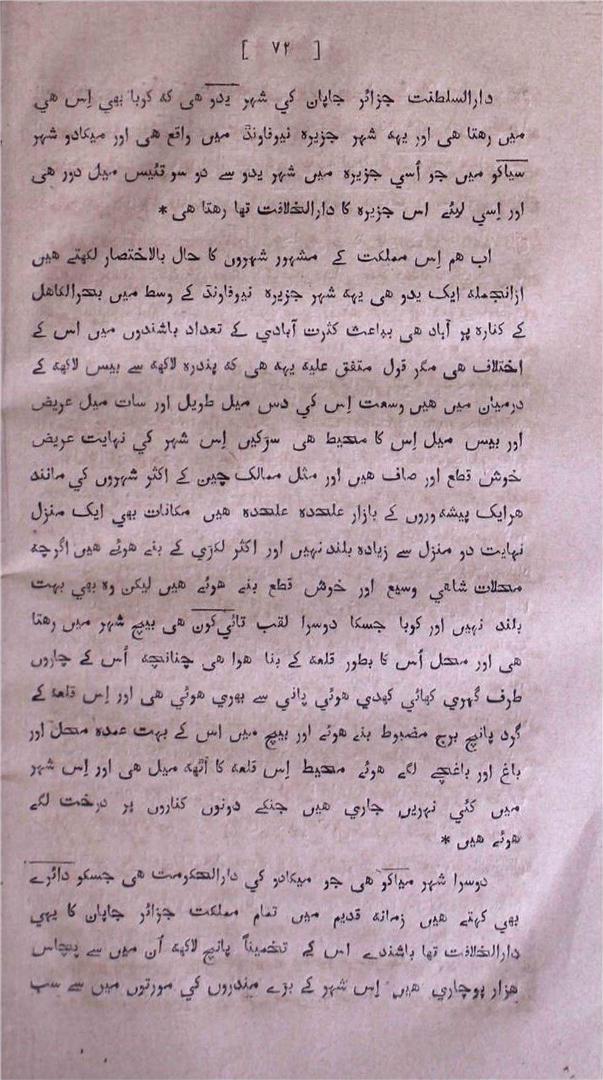 [ ۷۲ ]
دارالسلطنت جزائر جاپان کي شهر يدو هی که کوبا بهي اِس هي
ميں رهتا هی اور يهه شهر جزيره نيوفاونڈ ميں واقع هی اور ميکادو شهر
سياکو ميں جو اُسي جزيره ميں شهر يدو سے دو سو تئيس ميل دور هی
اور اِسي ليئے اس جزيره کا دارالخلافت تها رهتا هی *
اب هم اِس مملکت کے مشهور شهروں کا حال بالاختصار لکهتے هيں
ازانجمله ايک يدو هی يهه شهر جزيره نيوفاونڈ کے وسط ميں بحرالکاهل
کے کناره پر آباد هی بباعث کثرت آبادي کے تعداد باشندوں ميں اس کے
اختلاف هی مگر قول متفق عليه يهه هی که پندره لاکهه سے بيس لاکهه کے
درميان ميں هيں وسعت اِس کي دس ميل طويل اور سات ميل عريض
اور بيس ميل اِس کا محيط هی سڑکيں اِس شهر کي نهايت عريض
خوش قطع اور صاف هيں اور مثل ممالک چين کے اکثر شهروں کي مانند
هرايک پيشه وروں کے بازار علحده علحده هيں مکانات بهي ايک منزل
نهايت دو منزل سے زياده بلند نهيں اور اکثر لکڑي کے بنے هوئے هيں اگرچه
محلات شاهي وسيع اور خوش قطع بنے هوئے هيں ليکن وه بهي بهت
بلند نهيں اور کوبا جسکا دوسرا لقب تائي کون هی بيچ شهر ميں رهتا
هی اور محل اُس کا بطور قلعه کے بنا هوا هی چنانچه اُس کے چاروں
طرف گهري کهائي کهدي هوئي پاني سے بهري هوئي هی اور اِس قلعه کے
گرد پانچ برج مضبوط بنے هوئے اور بيچ ميں اس کے بهت عمده محل اور
باغ اور باغچے لگے هوئے محيط اِس قلعه کا آٹهه ميل هی اور اِس شهر
ميں کئي نهريں جاري هيں جنکے دونوں کناروں پر درخت لگے
هوئے هيں *
دوسرا شهر مياکو هی جو ميکادو کي دارالحکومت هی جسکو دائرے
بهي کهتے هيں زمانه قديم ميں تمام مملکت جزائر جاپان کا يهي
دارالخلافت تها باشندے اس کے تخميناً پانچ لاکهه اُن ميں سے پچاس
هزار پوچاري هيں اِس شهر کے بڑے مندروں کي مورتوں ميں سے سب